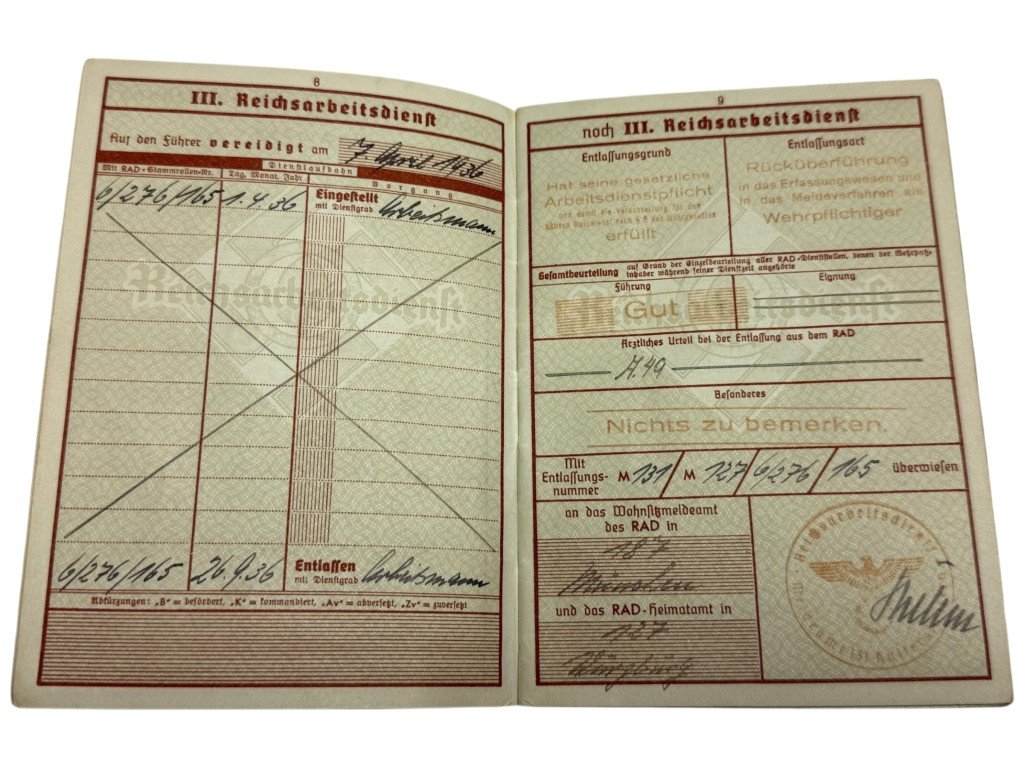 8
III. Reichsarbeitsdienst
Auf den Führer vereidigt am 7. April 1936
Dienstlaufbahn
Mit RAD-Stammrollen-Nr. Tag, Monat, Jahr Vorgang
6/276/165 1.4.36 Eingestellt
mit Dienstgrad Arbeitsmann
Reichsarbeitsdienst
6/276/165 26.9.36 Entlassen
mit Dienstgrad Arbeitsmann
Abkürzungen: „B“ = befördert, „K“ = kommandiert, „Av“ = abversetzt, „Zv“ = zuversetzt
9
noch III. Reichsarbeitsdienst
Entlassungsgrund
Hat seine gesetzliche
Arbeitsdienstpflicht
und damit die Voraussetzung für den
Aktiven Wehrdienst nach § 8 des Wehrgesetzes
erfüllt
Entlassungsart
Rücküberführung
in das Erfassungswesen und
in das Meldeverfahren als
Wehrpflichtiger
Gesamtbeurteilung auf Grund der Einzelbeurteilung aller RAD-Dienststellen, denen der Wehrpaß-
inhaber während seiner Dienstzeit angehörte
Führung
Gut
Eignung
Reichsarbeitsdienst
Ärztliches Urteil bei der Entlassung aus dem RAD
A.49
Besonderes
Nichts zu bemerken.
Mit
Entlassungs-
nummer M 131 / M 127 / 6/276 / 165 überwiesen
an das Wohnsitzmeldeamt
des RAD in
187
München
und das RAD-Heimatamt in
127
Würzburg
Reichsarbeitsdienst